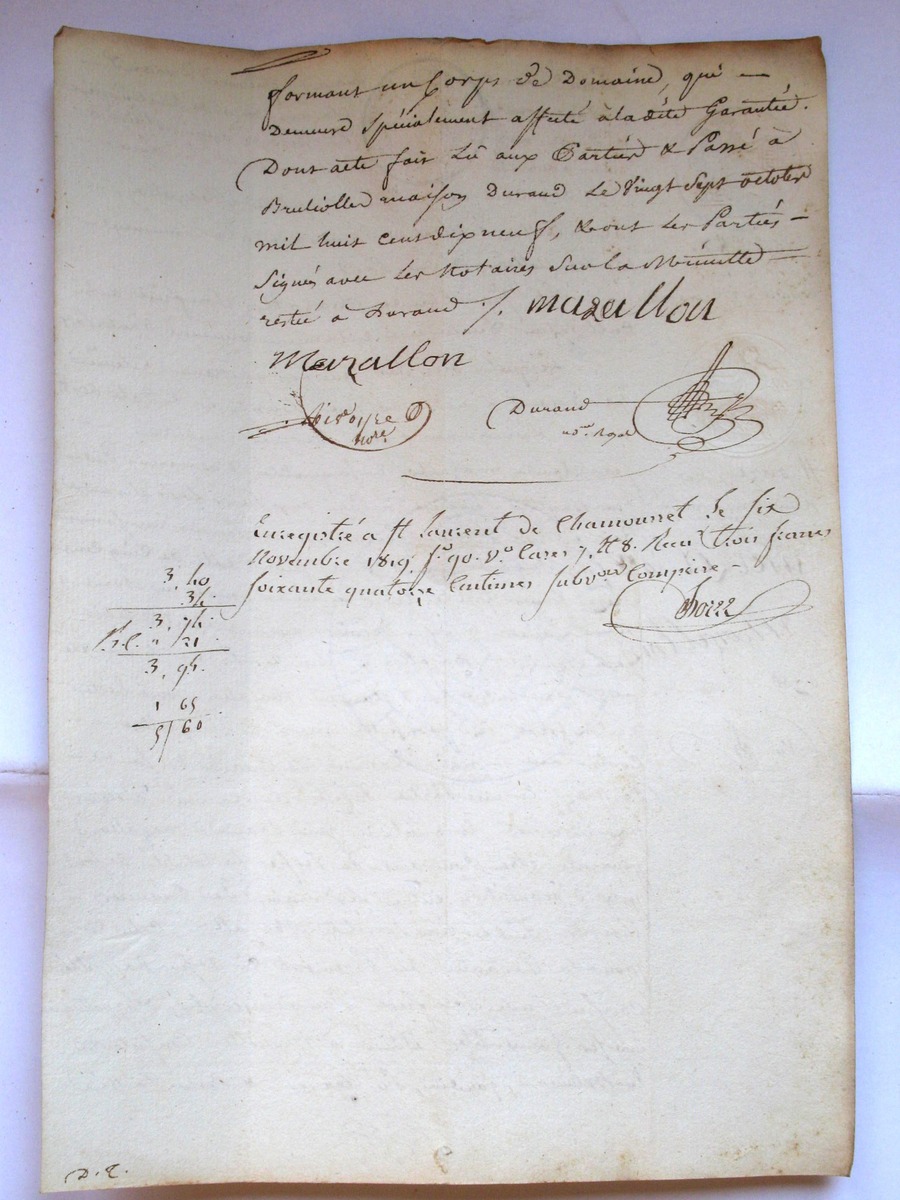 formant un Corps de Domaine, qui —
Demeure spécialement affecté à la dite Garantie.
Dont acte fait Lû aux Parties & Passé à
Brulliolles maison Durand Le Vingt Sept octobre
mil huit cent dix neuf, & ont les Parties —
Signés avec les Notaires Sur la Minutte —
restée à Durand /. Mazallon
Mazallon
Durand
nore
nore. Royal
Enregistré à St Laurent de Chamousset le six
Novembre 1819. fo. 90. Vo. Cases 7. et 8. Recu trois francs
soixante quatorze Centimes subvon Comprise —
3, 40
34
3, 74.
" 21
3, 95.
1 65
5/60
D. C.